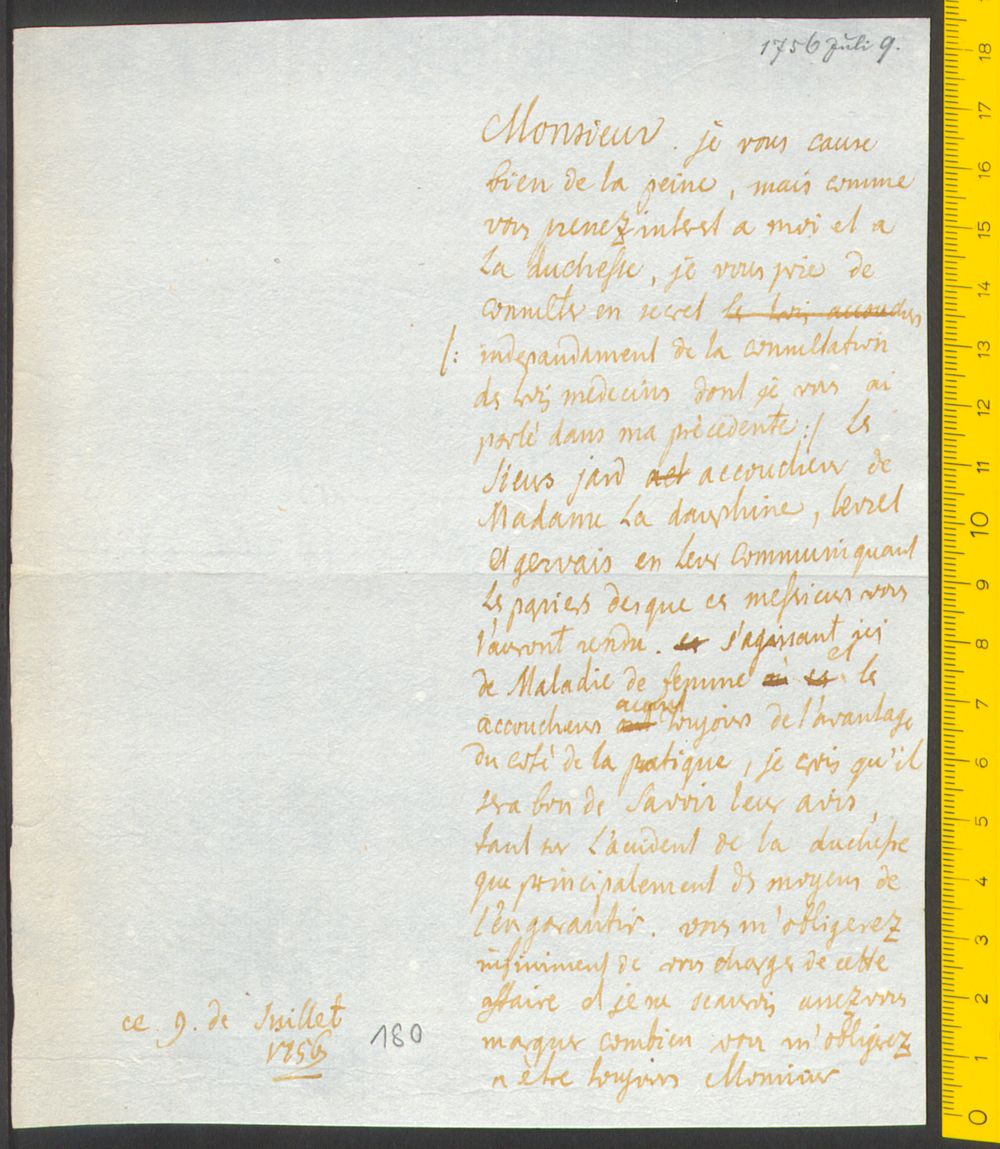 1756 Juli 9.
Monsieur. je vous cause
bien de la peine, mais comme
vous prenez interest a moi et a
La duchesse, je vous prie de
consulter en secret les trois accoucheurs
/: independament de la consultation
des trois medecins dont je vous ai
parlé dans ma précedente :/ Les
Sieurs jard act accoucheur de
Madame La dauphine, levret
et gervais en leur communiquant
Les papiers des que ces messieurs vous
l'auront rendu. s'agissant ici
de Maladie de femme et les
accoucheurs ayant toujours de l'avantage
Du coté de la pratique, je crois qu'il
sera bon de Savoir leur avis,
tant sur L'accident de la duchesse
que principalement des moyens de
l'en garantir. vous m'obligerez
infiniment de vous charger de cette
affaire et je ne scaurois assez vous
marquer combien vous m'obligez
a être toujours Monsieur
ce. 9. de Juillet
1756
180